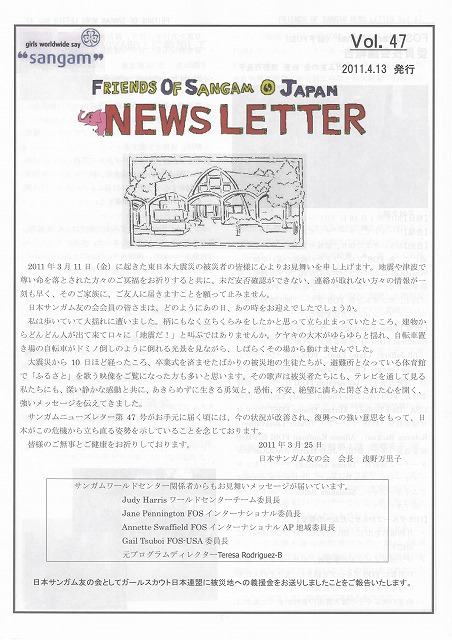 girls worldwide say
“sangam”
Vol. 47
2011.4.13 発行
FRIENDS OF SANGAM JAPAN
NEWS LETTER
2011年3月11日（金）に起きた東日本大震災の被災者の皆様に心よりお見舞いを申し上げます。地震や津波で
尊い命を落とされた方々のご冥福をお祈りすると共に、未だ安否確認ができない、連絡が取れない方々の情報が一
刻も早く、そのご家族に、ご友人に届きますことを願って止みません。
日本サンガム友の会会員の皆さまは、どのようにあの日、あの時をお迎えでしたでしょうか。
私は歩いていて大揺れに遭いました。柄にもなく立ちくらみをしたかと思って立ち止まっていたところ、建物か
らどんどん人が出て来て口々に「地震だ！」と叫ぶではありませんか。ケヤキの大木がゆらゆらと揺れ、自転車置
き場の自転車がドミノ倒しのように倒れる光景を見ながら、しばらくその場から動けませんでした。
大震災から 10 日ほど経ったころ、卒業式を済ませたばかりの被災地の生徒たちが、避難所となっている体育館
で「ふるさと」を歌う映像をご覧になった方も多いと思います。その歌声は被災者たちにも、テレビを通して見る
私たちにも、深い静かな感動と共に、あきらめずに生きる勇気と、恐怖、不安、絶望に満ちた閉ざされた心を開く、
強いメッセージを伝えてきました。
サンガムニューズレター第 47 号がお手元に届く頃には、今の状況が改善され、復興への強い意思をもって、日
本がこの危機から立ち直る姿勢を示していることを念じております。
皆様のご無事とご健康をお祈りしております。 2011年3月25日
日本サンガム友の会 会長 浅野万里子
サンガムワールドセンター関係者からもお見舞いメッセージが届いています。
Judy Harris ワールドセンターチーム委員長
Jane Pennington FOS インターナショナル委員長
Annette Swaffield FOS インターナショナル AP 地域委員長
Gail Tsuboi FOS-USA 委員長
元プログラムディレクターTeresa Rodriguez-B
日本サンガム友の会としてガールスカウト日本連盟に被災地への義援金をお送りしましたことをご報告いたします。